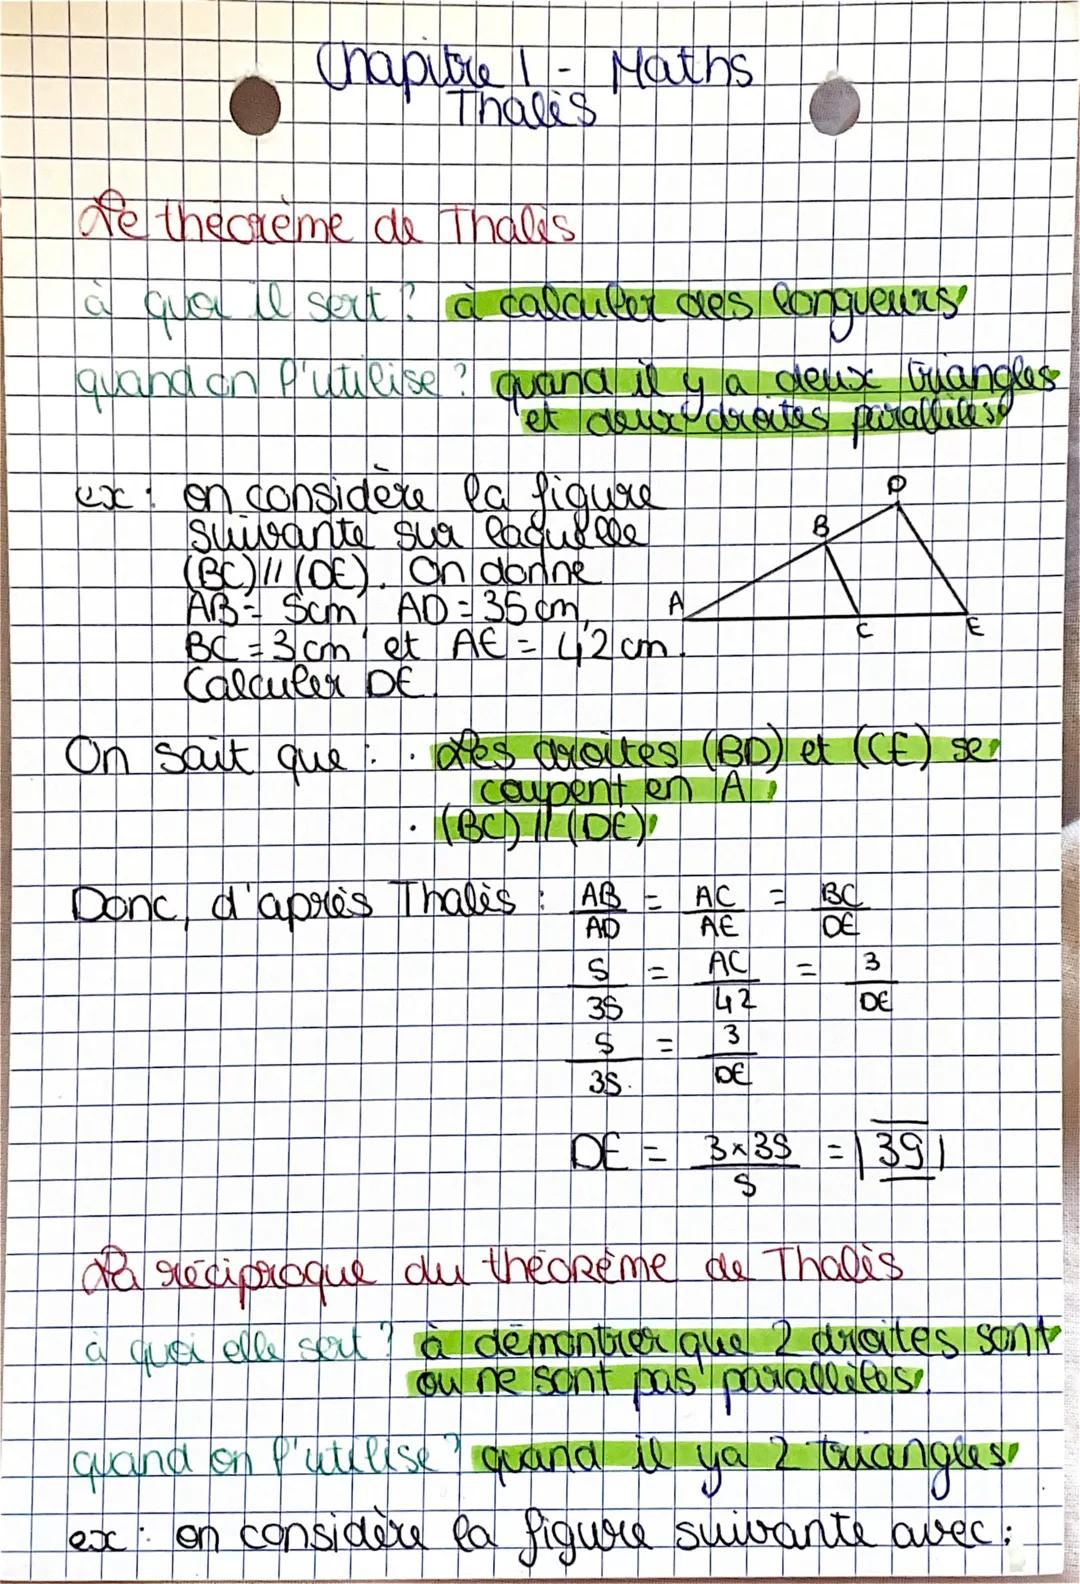 Chapitre 1 - Maths
Thalès
Le théorème de Thalès
à quoi il sert ? à calculer des longueurs
quand on l'utilise ? quand il y a deux triangles
et deux droites parallèles
ex : on considère la figure
suivante sur laquelle
(BC) // (DE). On donne
AB = 5cm, AD = 35 cm,
BC = 3 cm et AE = 42 cm.
Calculer DE.
D
B
A
C
E
On sait que : . Les droites (BD) et (CE) se
coupent en A
. (BC) // (DE)
Donc, d'après Thalès : AB/AD = AC/AE = BC/DE
5/35 = AC/42 = 3/DE
5/35 = 3/DE
DE = 3×35/5 = 39
La réciproque du théorème de Thalès
à quoi elle sert ? à démontrer que 2 droites sont
ou ne sont pas parallèles.
quand on l'utilise ? quand il y a 2 triangles
ex : on considère la figure suivante avec :